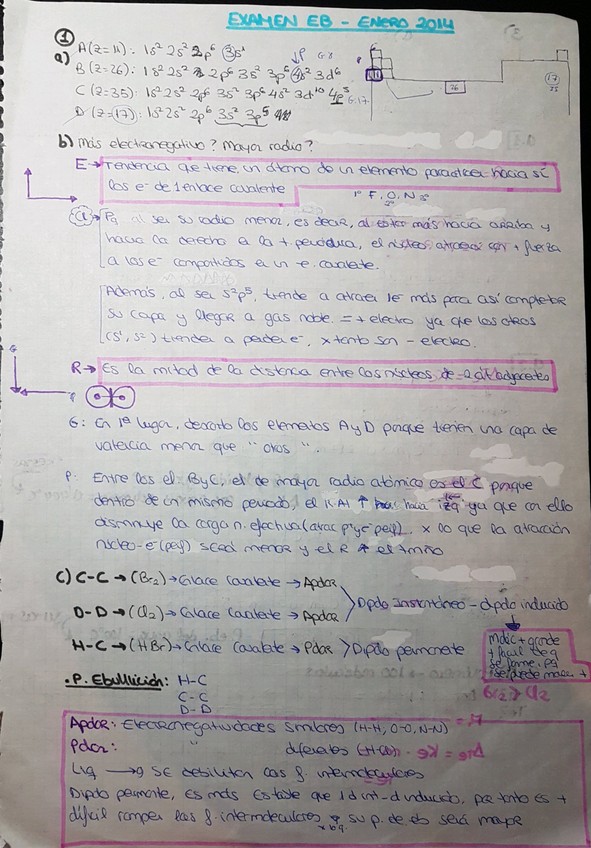 EXAMEN EB - ENERO 2014
①
a) A(Z=11): 1s² 2s² 2p⁶ 3s¹
B(Z=26): 1s² 2s² 2p⁶ 3s² 3p⁶ 4s² 3d⁶
C(Z=35): 1s² 2s² 2p⁶ 3s² 3p⁶ 4s² 3d¹⁰ 4p⁵ G.17
D(Z=17): 1s² 2s² 2p⁶ 3s² 3p⁵
P G8
26
17
35
b) Más electronegativo? Mayor radio?
E → Tendencia que tiene un átomo de un elemento para atraer hacia sí
los e⁻ de 1 enlace covalente
1º F, O, N
Pq al ser su radio menor, es decir, al estar más hacia arriba y
hacia la derecha en la t. periódica, el núcleo atraerá con + fuerza
a los e⁻ compartidos en un e. covalente.
Además, al ser s²p⁵, tiende a atraer 1e⁻ más para así completar
su capa y llegar a gas noble = + electro ya que los otros
(s¹, s²) tienden a perder e⁻, x tanto son - electro.
R → Es la mitad de la distancia entre los núcleos de 2 át. adyacentes
G: En 1º lugar, descarto los elementos A y D porque tienen una capa de
valencia menor que "otros".
P: Entre los el. B y C, el de mayor radio atómico es el porque
dentro de un mismo periodo, el R.At ↑ hacia izq ya que con ello
disminuye la carga n. efectiva (atrac p⁺ y e⁻ perif) x lo que la atracción
núcleo-e⁻(perif) será menor y el R ↑ el tmño
c) C-C → (Br₂) → Enlace Covalente → Apolar
D-D → (Cl₂) → Enlace Covalente → Apolar
Dipolo Instantáneo - dipolo inducido
H-C → (HBr) → Enlace Covalente → Polar > Dipolo permanente
Mólc + grande
+ fácil de q
se forme, pq
se puede mover +
Br₂ > Cl₂
• P. Ebullición: H-C
C-C
D-D
Apolar: Electronegatividades similares (H-H, O-O, N-N)
Polar: " diferentes
Líq → g se debilitan las f. intermoleculares
Dipolo permnte, es más estable que 1 d inst-d inducido, por tanto es +
difícil romper las f. intermoleculares y su p. de eb será mayor
x bq